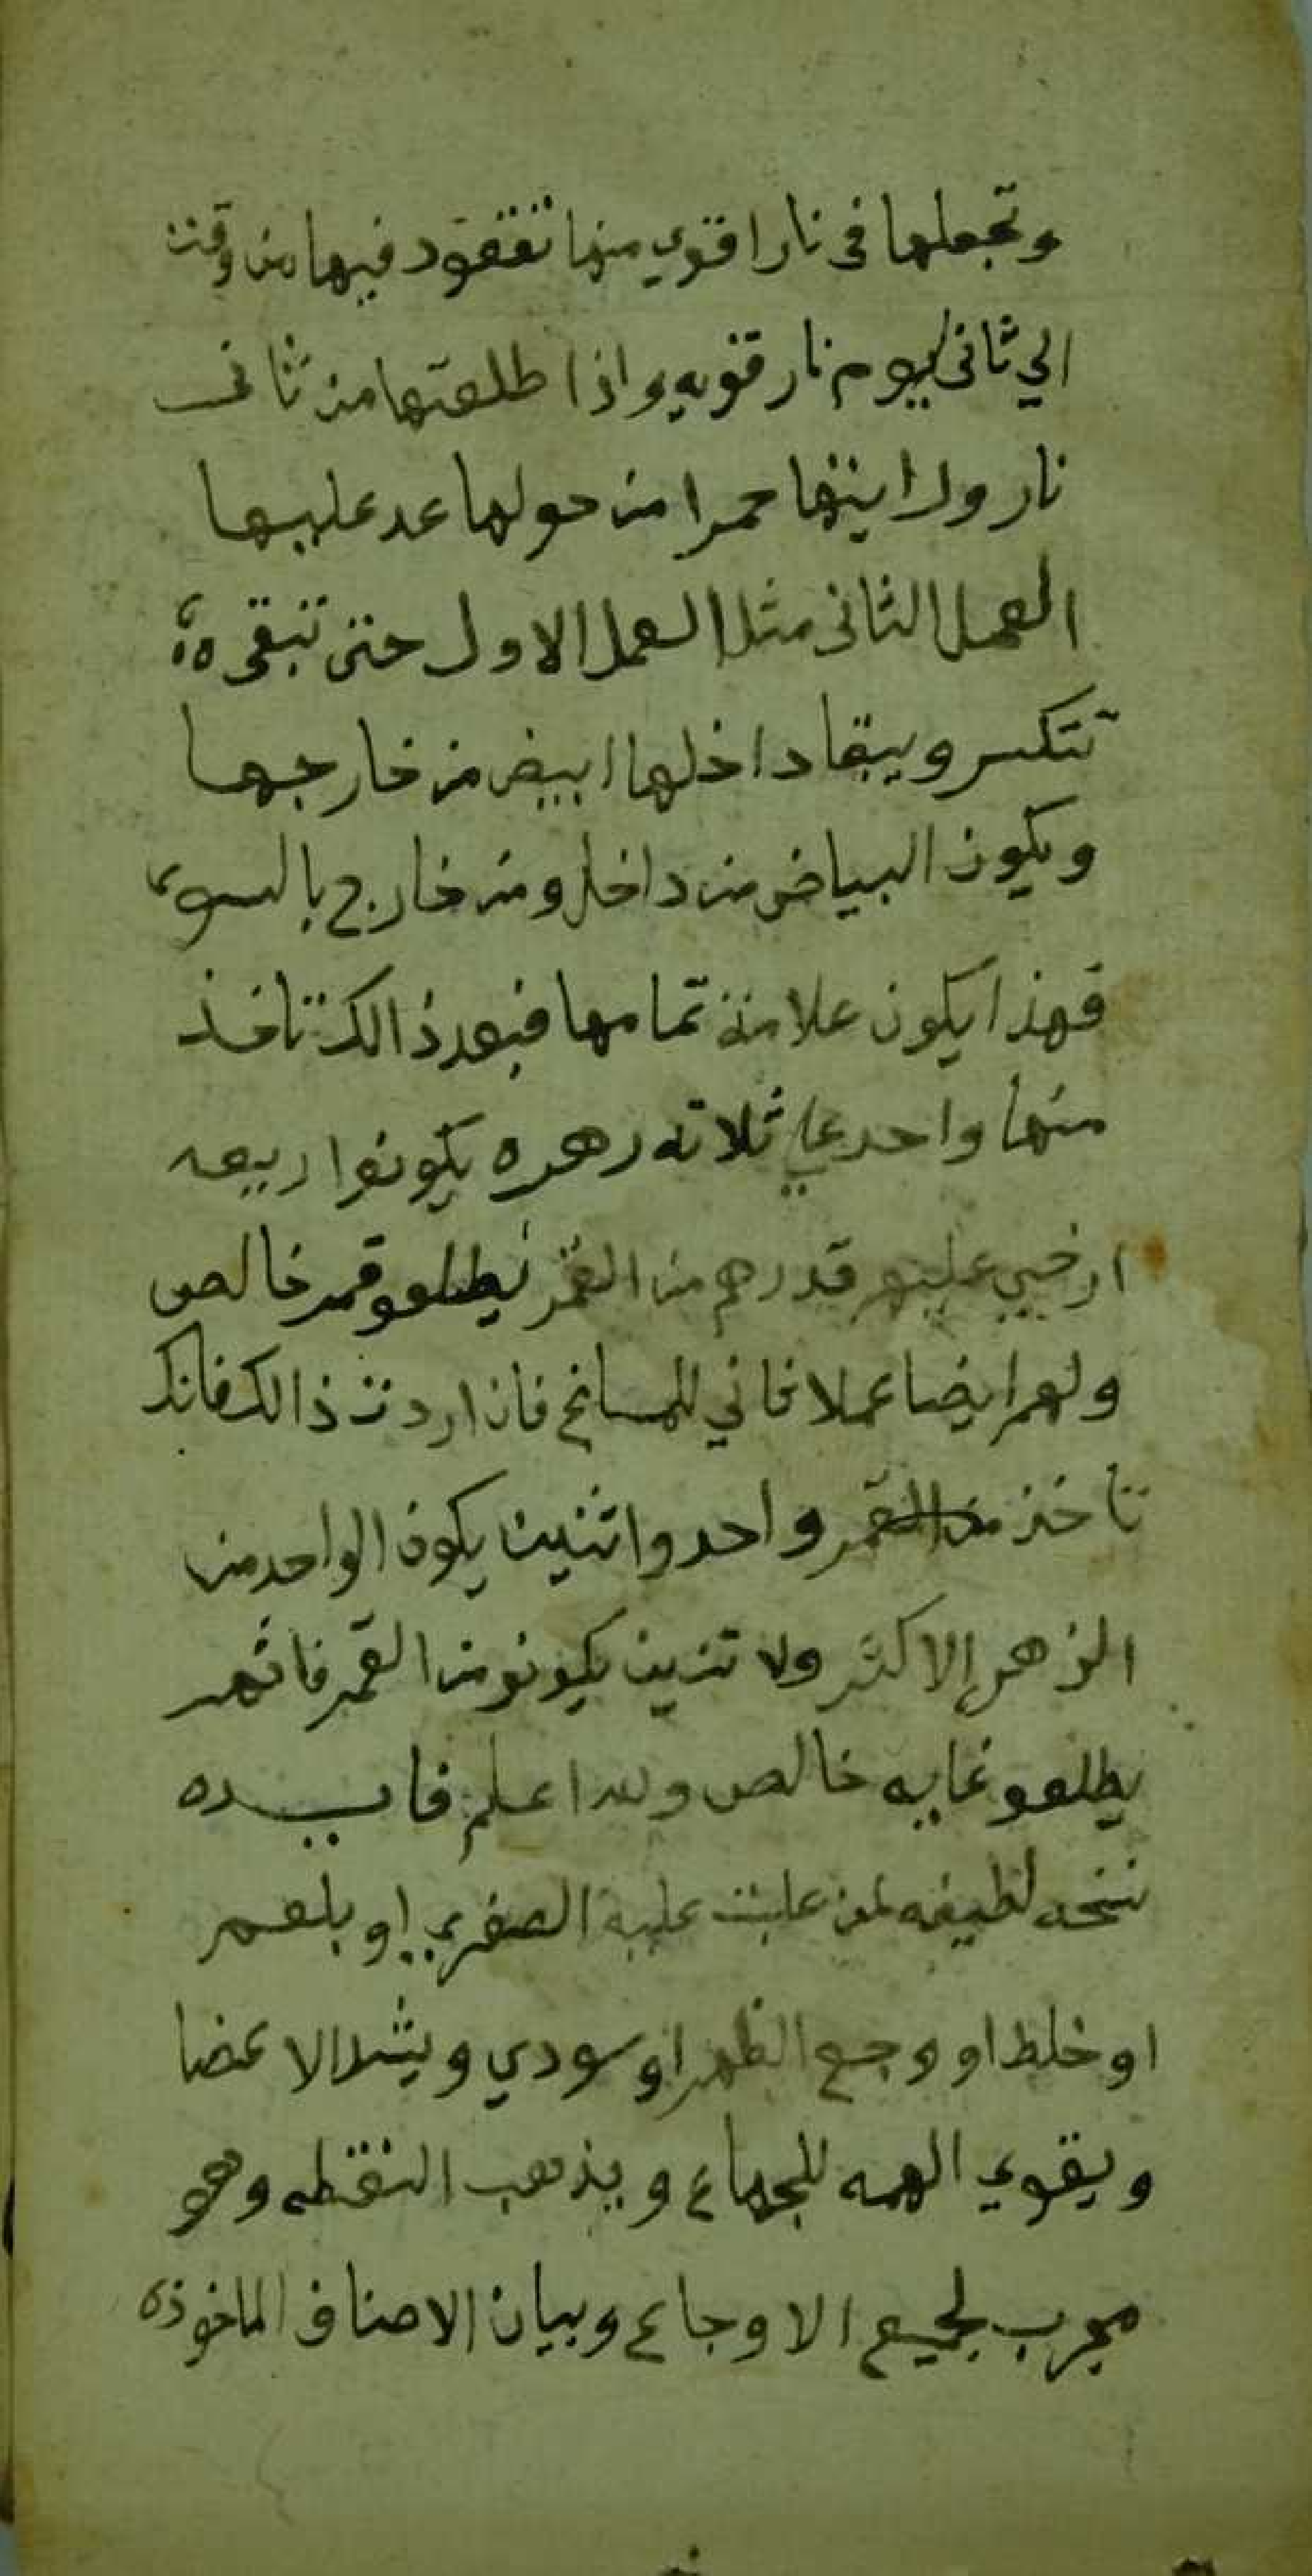 وتجعلها في نار اقوي منها تقعود فيها من وقت
الي ثاني يوم نار قويه واذا طلعتها من ثاني
نار ورايتها حمرا من حولها عد عليها
العمل الثاني مثل العمل الاول حتي تبقي
تتكسر ويبقا داخلها ابيض من خارجها
ويكون البياض من داخل ومن خارج بالسوي
فهذا يكون علامة تمامها فبعد ذالك تاخذ
منها واحد علي ثلاثه زهره يكونوا اربعه
ارخي عليهم قد درهم من القمر يطلعو قمر خالص
ولهم ايضا عملا ثاني للمسابح فاذا اردت ذالك فانك
تاخذ من القمر واحد واثنين يكون الواحد من
الزهر الاكثر ولاتنين يكونو من القمر فانهم
يطلعو غايه خالص والله اعلم فايده
نسخه لطيفه لمن غلبت عليه الصفري او بلغم
او خلط او وجع الظهر او سودي ويشد الاعضا
ويقوي الهمه للجماع ويذهب النقطه وهو
مجرب لجميع الاوجاع وبيان الاصناف الماخوذه